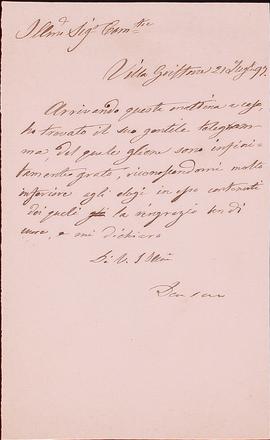 Illmo Sigr Comm
Villa 21 Luglio 97
Arrivando questa mattina a casa,
ho trovato il suo gentile telegram
ma, del quale gliene sono infini
tamente grato, riconoscendomi molto
inferiore agli elogi in esso contenuti
dei quali la ringrazio
e mi dichiaro
Di V. S. Illma